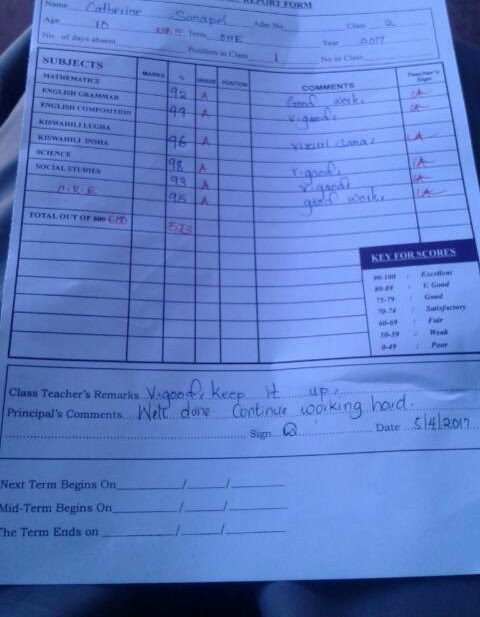 REPORT FORM
Name Catherine Sonapei Adm No. Class 2
Age 10 Term ONE Year 2017
No. of days absent Position in Class 1 No in Class
SUBJECTS MARKS % GRADE POSITION COMMENTS Teacher's Sign
MATHEMATICS 92 A Good work.
ENGLISH GRAMMAR 99 A V.good.
ENGLISH COMPOSITION
KISWAHILI LUGHA 96 A vizuri sana.
KISWAHILI INSHA
SCIENCE 98 A V.good.
SOCIAL STUDIES 93 A V.good
C.R.E 95 A good work.
TOTAL OUT OF 500 600 573
KEY FOR SCORES
90-100 : Excellent
80-89 : V. Good
75-79 : Good
70-74 : Satisfactory
60-69 : Fair
50-59 : Weak
0-49 : Poor
Class Teacher's Remarks V.good, keep it up.
Principal's Comments Well done Continue working hard.
Sign Date 5/4/2017
Next Term Begins On / /
Mid-Term Begins On / /
The Term Ends on / /